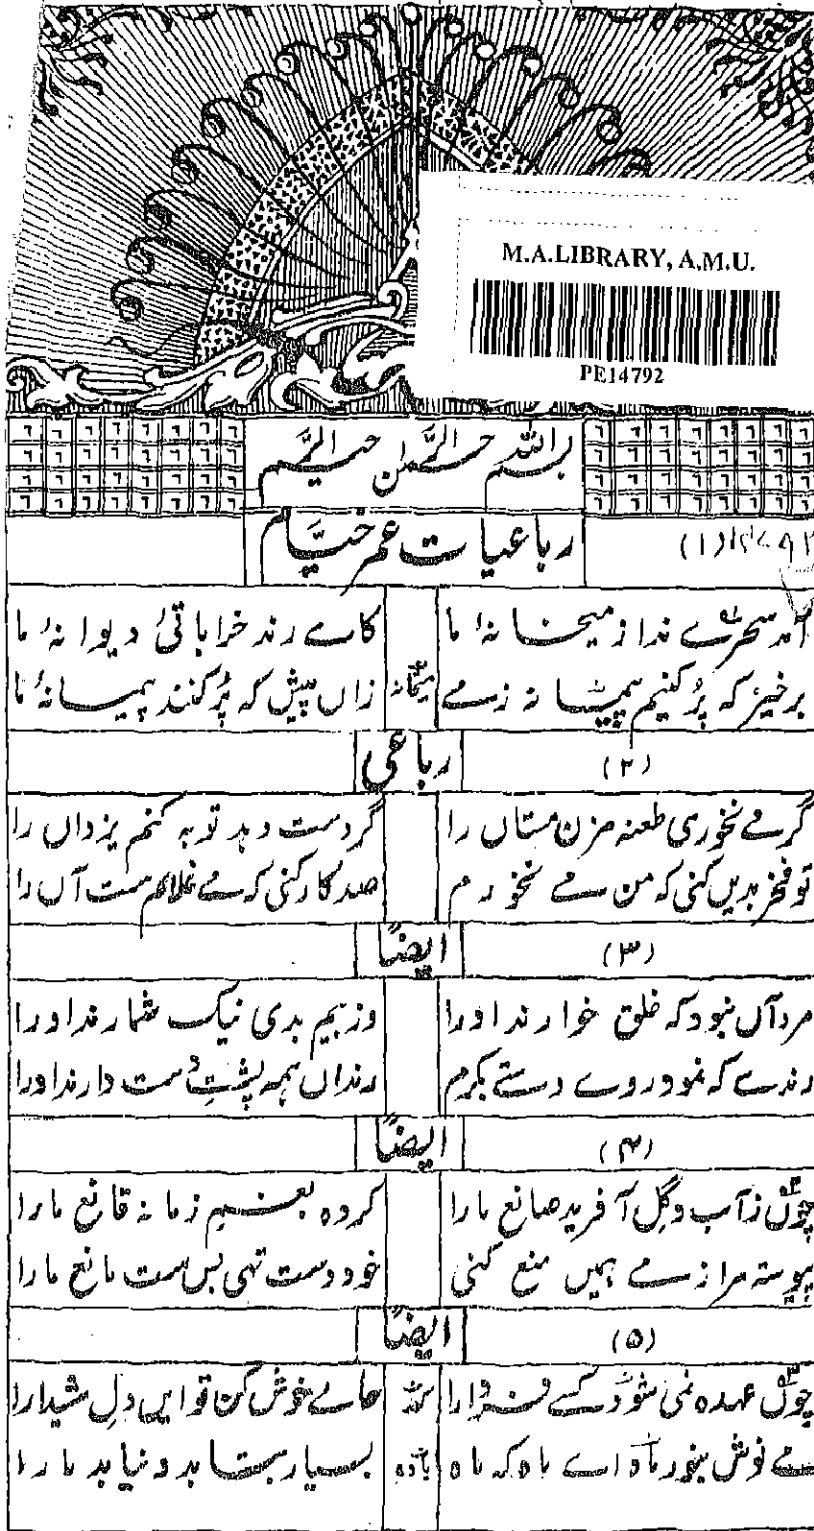 M.A.LIBRARY, A.M.U.
PE14792
بسم اللہ الرحمٰن الرحیم
رباعیات عمر خیّام
(۱)
آمد سحرے ندا ز میخانۂ ما کاے رند خراباتئ دیوانۂ ما
برخیز کہ پُر کنیم پیمانہ ز مے زاں پیش کہ پُر کنند پیمانۂ ما
(۲) رباعی
گر مے نخوری طعنہ مزن مستاں را گر دست دہد توبہ کنم یزداں را
تو فخر بدیں کنی کہ من مے نخورم صد کار کنی کہ مے غلام ست آں را
(۳) ایضاً
مرد آں نبود کہ خلق خوارند او را وز بیم بدی نیک شمارند او را
رندے کہ نمود روے دستے بکرم رنداں ہمہ پشتِ دست دارند او را
(۴) ایضاً
چوں ز آب و گِل آفرید صانع ما را کردہ بغم زمانہ قانع ما را
پیوستہ مرا ز مے ہمیں منع کنی خود دست تہی بس ست مانع ما را
(۵) ایضاً
چوں عہدہ نمی شود کسے فردا را حالے خوش کن تو ایں دلِ شیدا را
مے نوش بنور ماہ اے ماہ کہ ماہ بادہ بسیار بتابد و نیابد ما را